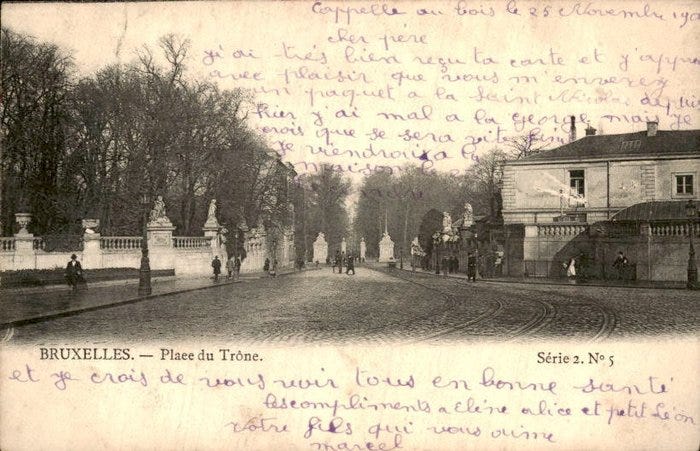 Cappelle au bois le 25 Novembre
cher père
j'ai très bien reçu ta carte et j'appr
avec plaisir que vous m'enverez
un paquet a la Saint Nicolas depuis
hier j'ai mal a la george mais je
crois que se sera vite fini
je viendrois a la
maison
BRUXELLES. — Place du Trône.
Série 2. No 5
et je crois de vous voir tous en bonne santé
les compliments a eléne alice et petit Léon
votre fils qui vous aime
marcel